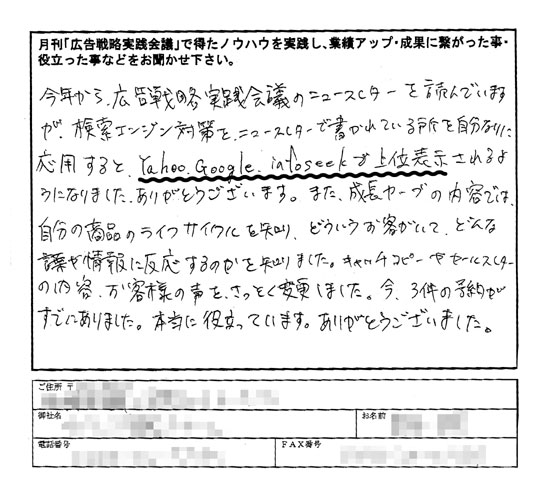 月刊「広告戦略実践会議」で得たノウハウを実践し、業績アップ・成果に繋がった事・
役立った事などをお聞かせ下さい。
今年から、広告戦略実践会議のニュースレターを読んでいます
が、検索エンジン対策を、ニュースレターで書かれている所を自分なりに
応用すると、Yahoo、Google、infoseekで上位表示されるよ
うになりました。ありがとうございます。また、成長カーブの内容では、
自分の商品のライフサイクルを知り、どういうお客がいて、どんな
言葉や情報に反応するのかを知りました。キャッチコピーやセールスレター
の内容、お客様の声を、さっそく変更しました。今、3件の予約が
すでにありました。本当に役立っています。ありがとうございました。
ご住所 〒
御社名
お名前
電話番号
FAX番号